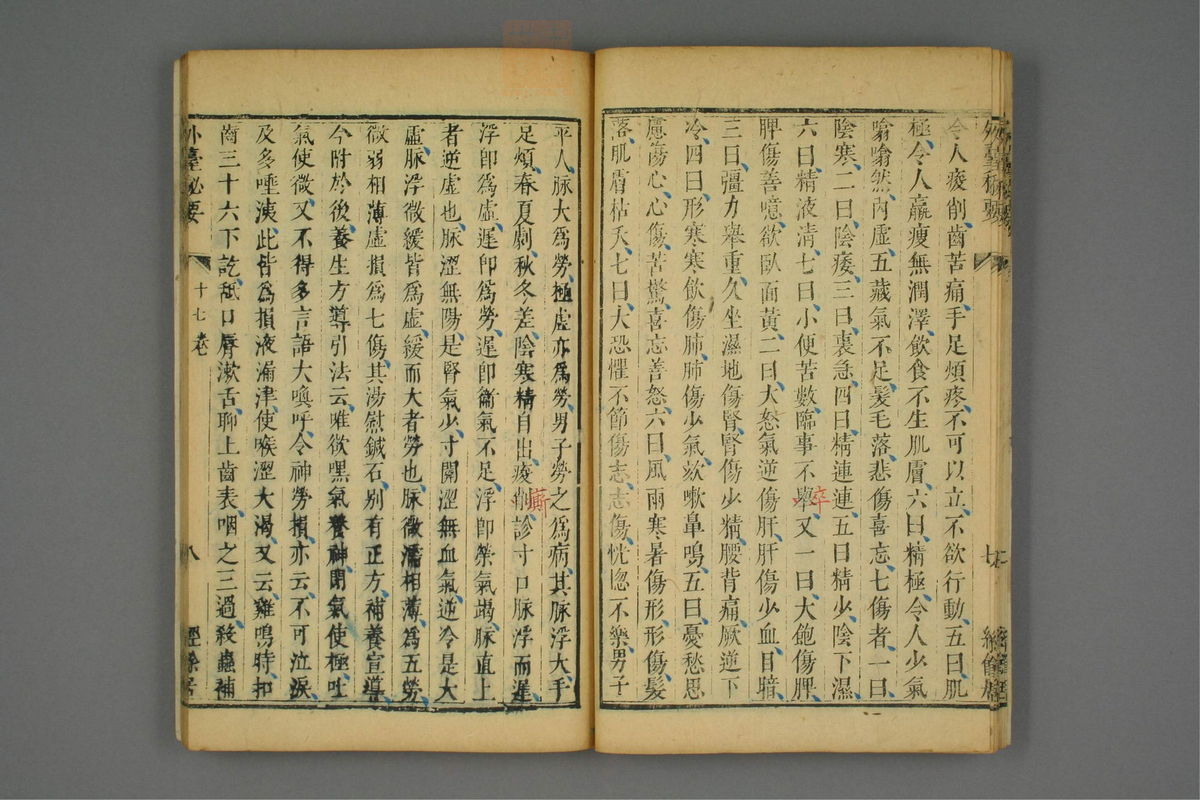 外臺秘要
七
經餘居
令人痠削齒苦痛、手足煩疼、不可以立、不欲行動、五曰肌
極、令人羸瘦無潤澤飲食不生肌膚、六曰、精極、令人少氣
噏噏然、內虛、五藏氣不足髮毛落悲傷喜忘、七傷者、一曰
陰寒、二曰、陰痿、三曰、裏急、四曰、精連連、五曰、精少陰下濕、
六曰、精液清、七曰、小便苦數、臨事不舉、又一曰、大飽傷脾、
卒
脾傷善噫、欲臥面黃、二曰、大怒氣逆傷肝、肝傷少血、目暗
三曰、彊力舉重、久坐濕地傷腎、腎傷少精、腰背痛、厥逆下
冷、四曰、形寒寒飲傷肺、肺傷少氣、欬嗽鼻鳴、五曰、憂愁思
慮傷心、心傷苦驚喜忘善怒、六曰、風雨寒暑傷形、形傷髮
落、肌膚枯夭、七曰、大恐懼不節傷志、志傷恍惚不樂、男子
平人脉大爲勞、極虛亦爲勞、男子勞之爲病、其脉浮大、手
足煩、春夏劇、秋冬差、陰寒精自出、痠削、診寸口脉浮而遲、
浮卽爲虛、遲卽爲勞、遲卽衞氣不足、浮卽榮氣竭、脉直上
者逆虛也、脉澀無陽、是腎氣少、寸關澀無血氣、逆冷是大
虛、脉浮微緩皆爲虛、緩而大者勞也、脉微濡相薄、爲五勞
微弱相薄虛損爲七傷、其湯熨鍼石、別有正方、補養宣導、
今附於後、養生方導引法云、唯欲嘿氣養神、閉氣使極、吐
氣使微、又不得多言語大喚呼、令神勞損、亦云、不可泣淚、
及多唾洟、此皆爲損液漏津、使喉澀大渴、又云、雞鳴時、扣
齒三十六下訖、舐口脣漱舌、聊上齒表、咽之三過、殺蟲補
外臺秘要
十七卷
八
經餘居